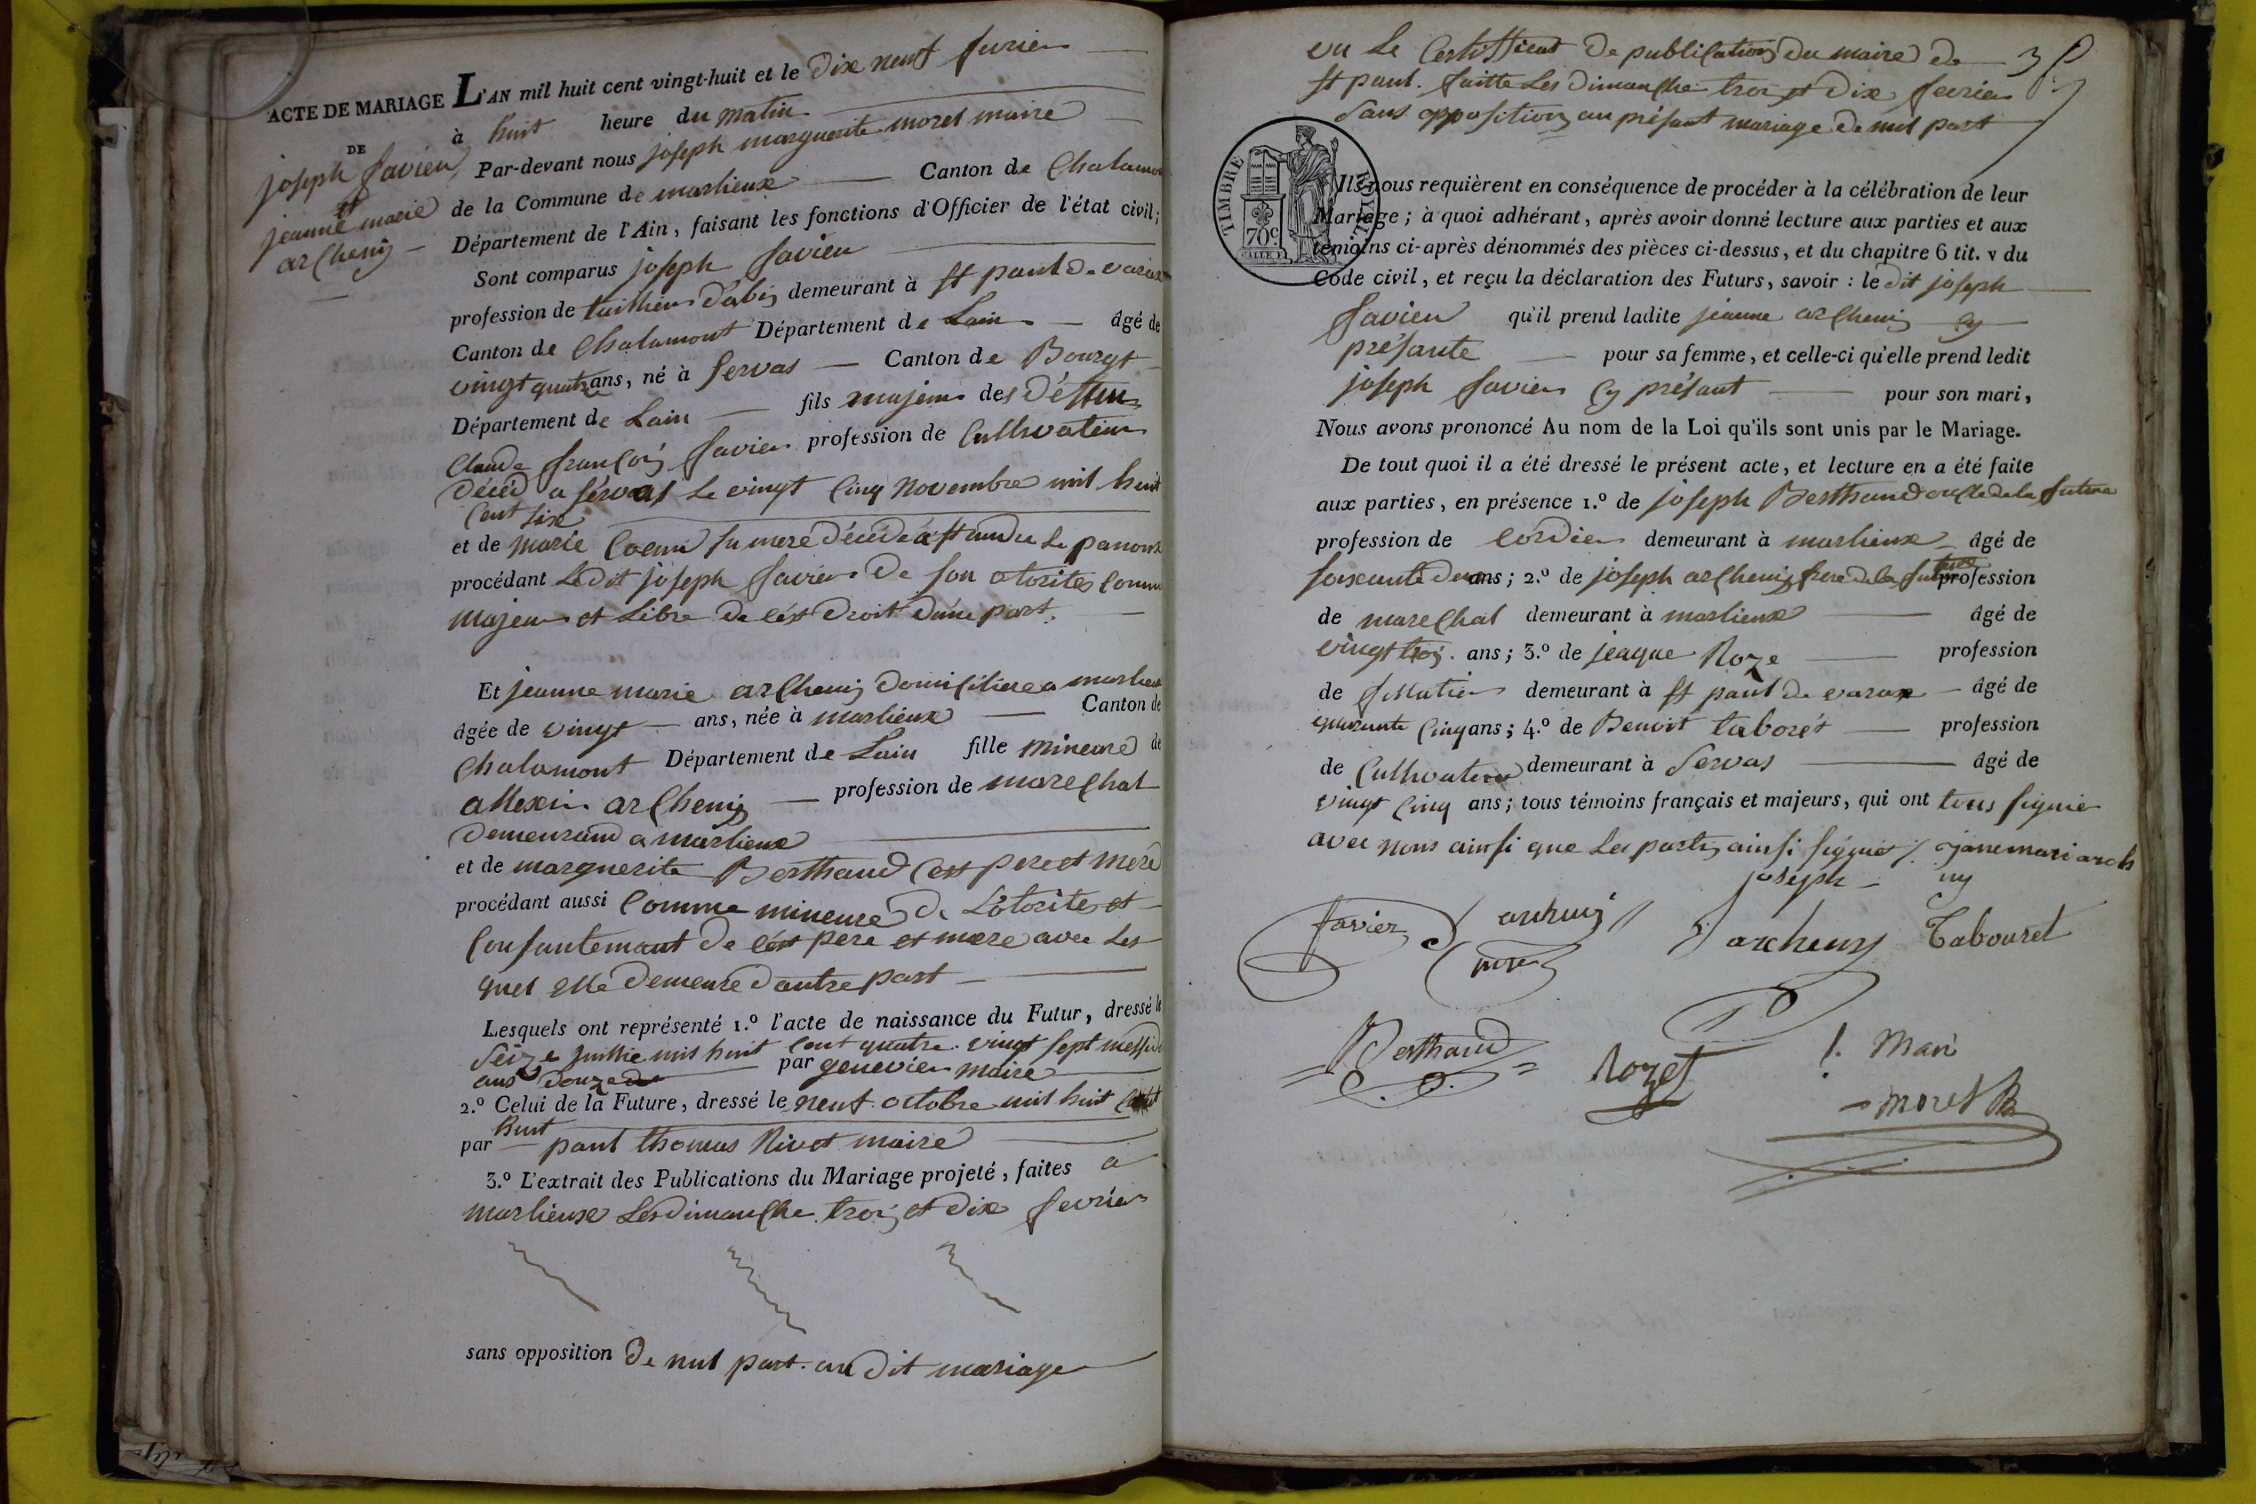 L'AN mil huit cent vingt-huit et le dix neuf fevrier
ACTE DE MARIAGE
à huit heure du matin
DE
joseph favier
et
jeanne marie
archeny
Par-devant nous joseph marguerite moret maire
de la Commune de marlieux Canton de Chalamont
Département de l'Ain, faisant les fonctions d'Officier de l'état civil;
Sont comparus joseph favier
profession de taillieur d'abis demeurant à st paul de varax
Canton de Chalamont Département de Lain âgé de
vingt quatre ans, né à servas Canton de Bourgt
Département de Lain fils majeur des déffun
Claude françois favier profession de Cultivateur
décéd a sérvas Le vingt Cinq Novembre mil huit
Cent six
et de marie sa mere décédé a st andre le panoux
procédant Ledit joseph favier de son otorités Comme
majeur et Libre de cést droit d'une part.
Et jeanne marie archeny domisiliere a marlieux
âgée de vingt ans, née à marlieux Canton de
Chalamont Département de Lain fille mineure de
allexin archeny profession de marechal
demeurand a marlieux
et de marguerite Berthaud Cest pere et mere
procédant aussi Comme mineure de L'otorités et
Consantemant de cést pere et mere avec Les
quel elle demeure d'autre part
Lesquels ont représenté 1.º l'acte de naissance du Futur, dressé le
seize juillie mil huit Cent quatre. vingt sept messidor
ans douze par genevier maire
2.º Celui de la Future, dressé le neuf octobre mil huit Cent
huit
par paul thomas Rivet maire
3.º L'extrait des Publications du Mariage projeté, faites a
marlieux Les dimanche trois et dix fevrier
sans opposition de nul part. au dit mariage
vu Le Certifficat de publication du maire de
st paul. faitte Les dimanche trois et dix fevrier
sans opposition au présant mariage de nul part
TIMBRE ROYAL
70c
Ils nous requièrent en conséquence de procéder à la célébration de leur
Mariage; à quoi adhérant, après avoir donné lecture aux parties et aux
témoins ci-après dénommés des pièces ci-dessus, et du chapitre 6 tit. v du
Code civil, et reçu la déclaration des Futurs, savoir : le dit joseph
favier qu'il prend ladite jeanne archeny cy
présante pour sa femme, et celle-ci qu'elle prend ledit
joseph favier cy présant pour son mari,
Nous avons prononcé Au nom de la Loi qu'ils sont unis par le Mariage.
De tout quoi il a été dressé le présent acte, et lecture en a été faite
aux parties, en présence 1.º de joseph Berthaud oncle de la future
profession de cordier demeurant à marlieux âgé de
soixante deux ans; 2.º de joseph archeny frere de la future profession
de marechal demeurant à marlieux âgé de
vingt trois. ans; 3.º de jeaque Roze profession
de demeurant à st paul de varax âgé de
quarante Cinq ans; 4.º de Benoit taborét profession
de Cultivateur demeurant à Servas âgé de
vingt Cinq ans; tous témoins français et majeurs, qui ont tous signié
avec nous ainsi que Les partis ainsi signiet janemari arch
joseph ny
favier J archeny Tabouret
Berthaud Rozet
moret